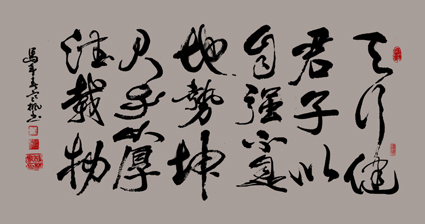 天行健
君子以
自强不息
地勢坤
君子以厚
德載物